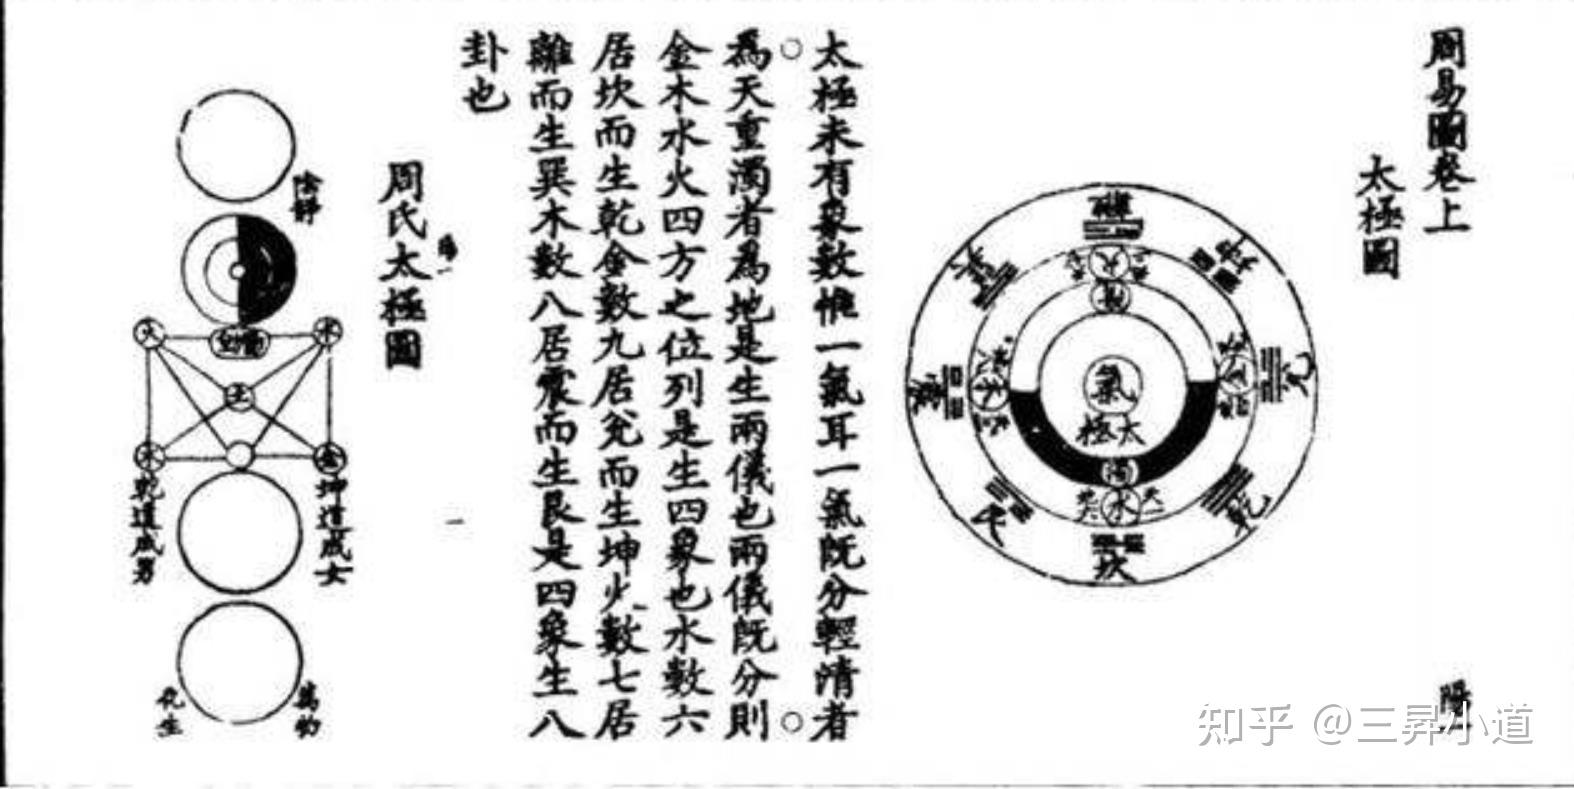 周易圖卷上
太極圖
離
坤
兌
乾
坎
艮
震
火
水
氣
太極
太極未有象數惟一氣耳一氣既分輕清者
為天重濁者為地是生兩儀也兩儀既分則
金木水火四方之位列是生四象也水數六
居坎而生乾金數九居兌而生坤火數七居
離而生巽木數八居震而生艮是四象生八
卦也
周氏太極圖
陰靜
火
水
土
木
金
坤道成女
乾道成男
萬物
化生
一
知乎 @三昇小道